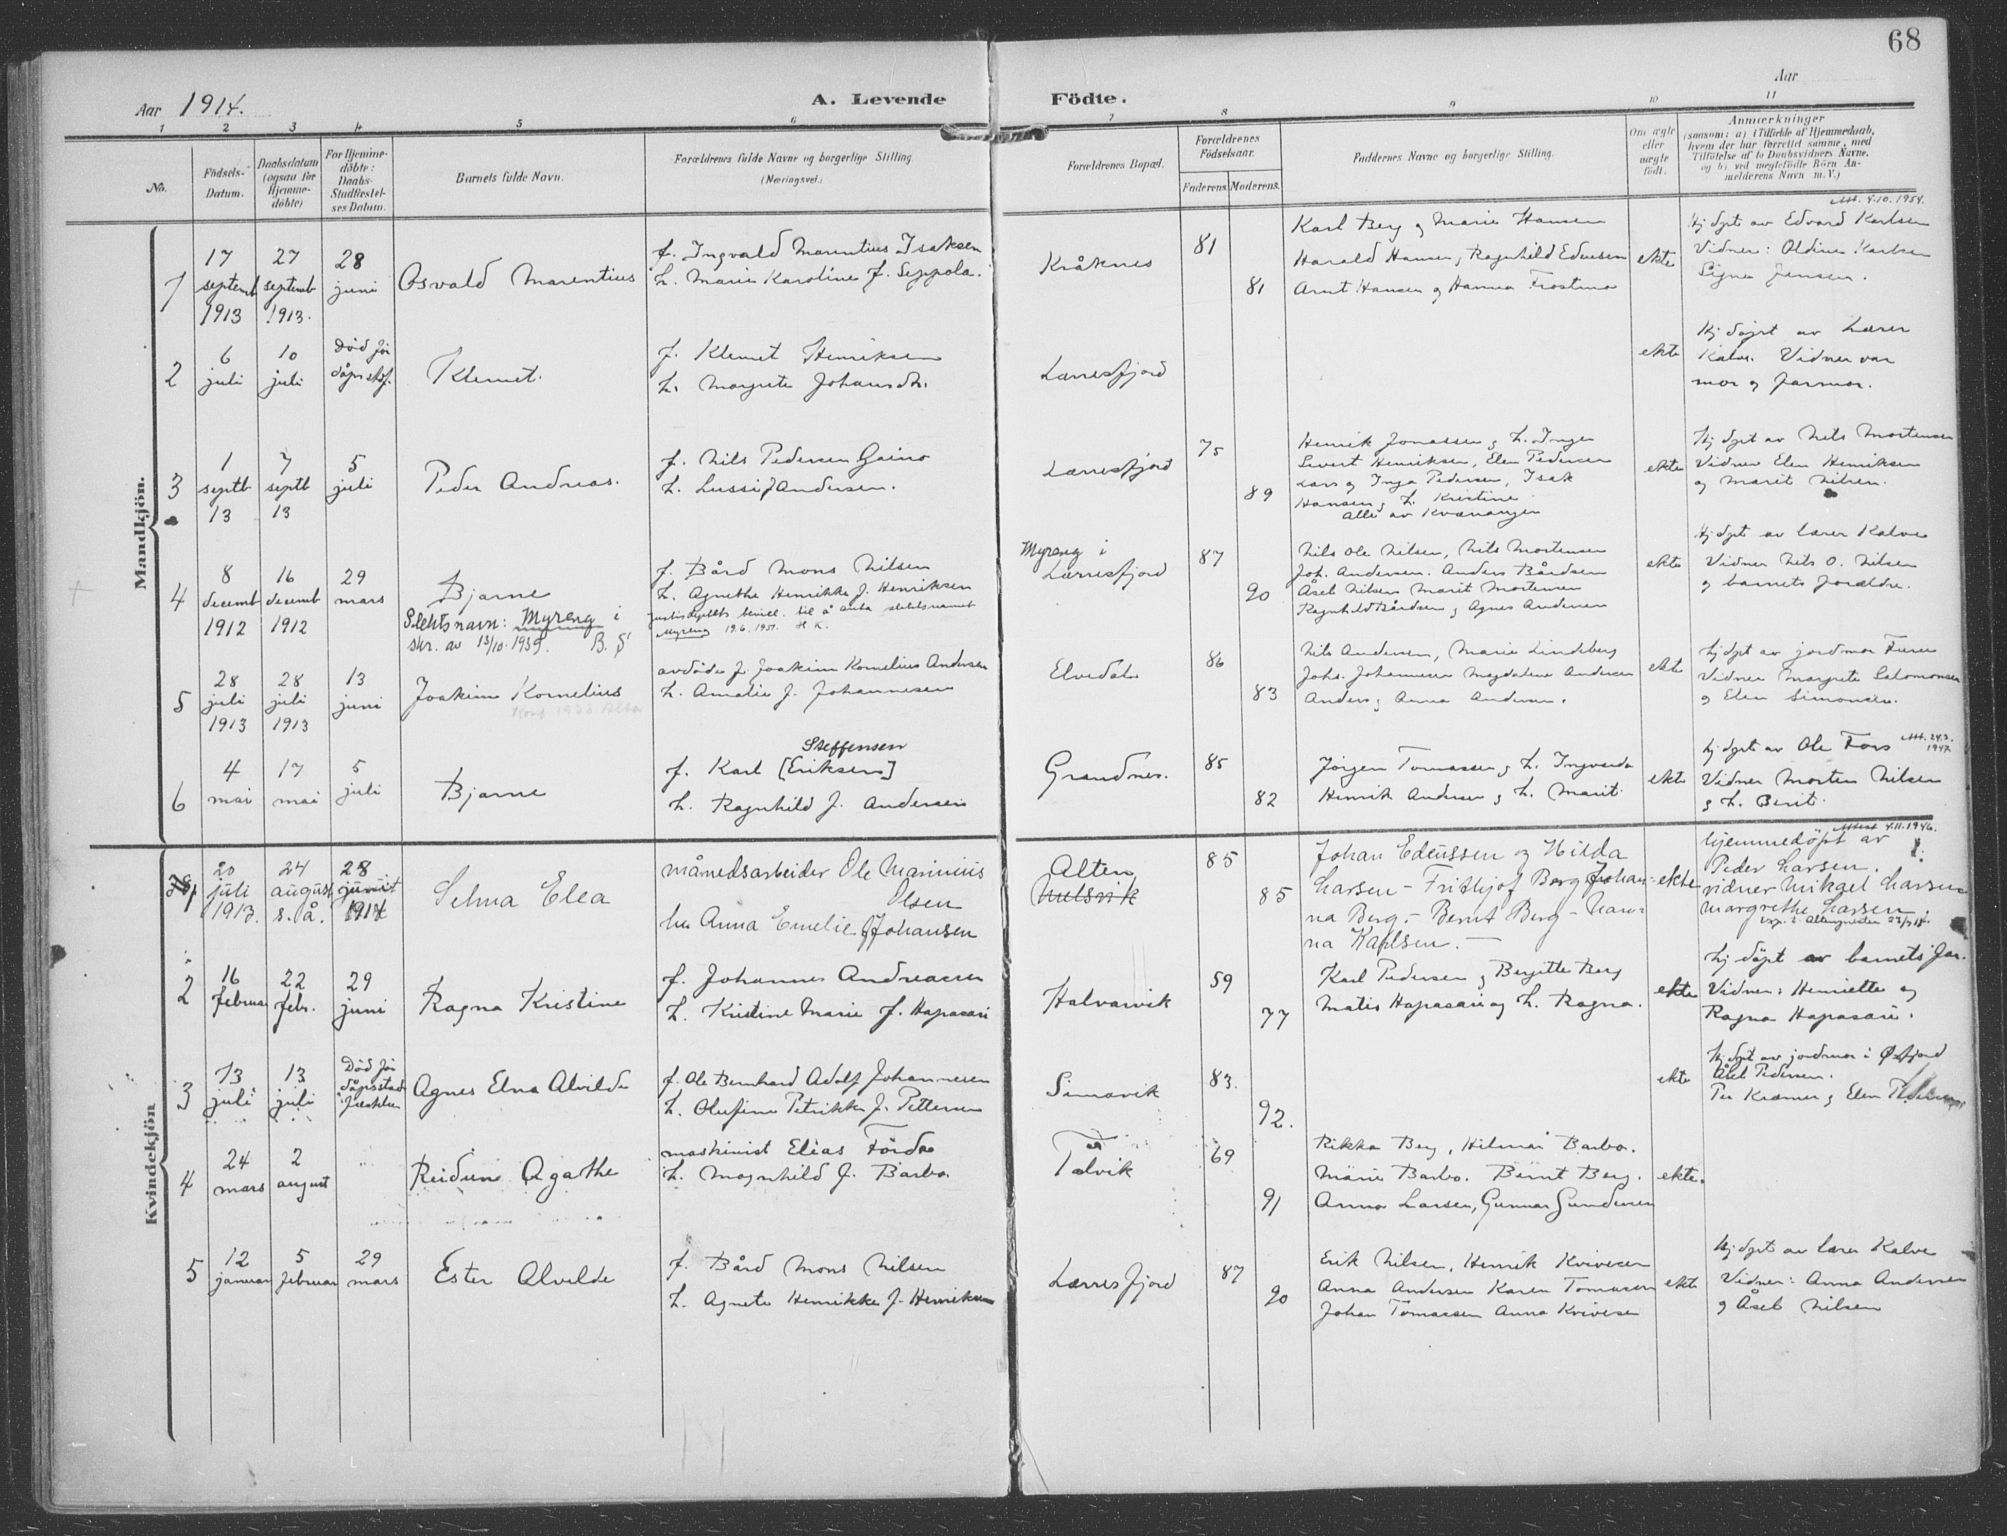 68
Aar 1914.
A. Levende Födte.
Aar
1 2 3 4 5 6 7 8 9 10 11
No.
Födsels-Datum.
Daabsdatum (ogsaa for Hjemme-döbte)
For Hjemme-döbte: Daabs-Stadfæstel-ses Datum.
Barnets fulde Navn.
Forældrenes fulde Navne og borgerlige Stilling.
(Næringsvei.)
Forældrenes Bopæl.
Forældrenes Födselsaar.
Faderens. Moderens.
Faddernes Navne og borgerlige Stilling.
Om ægte eller uægte födt.
Anmærkninger
(saasom: a) i Tilfælde af Hjemmedaab,
hvem der har forrettet samme, med
Tilföielse af to Daabsvidners Navne.
og b) ved uegtefödte Börn An-
melderens Navn m. V.)
Mandkjön.
Att. 4.10.1954.
1
17 septemb 1913
27 septemb 1913.
28 juni
Osvald Marentius
f. Ingvald Marentius Isaksen
h. Marie Karoline f. Seppola.
Kråknes
81
81
Karl Berg og Marie Hansen
Harald Hansen, Ragnhild Edvardsen
Arnt Hansen og Hanna
ekte
Hj døpt av Edvard Karlsen
Vidner: Oldine Karlsen
Signe Jensen.
2
6 juli
10 juli
Død før dåps stadf.
Klemet.
f. Klemet Henriksen
h. Margrete Johansdtr.
Lærresfjord
ekte
Hj døpt av Lærer
Kalve. Vidner var
mor og farmor.
3
1 septb 13
7 septb 13
5 juli
Peder Andreas.
f. Nils Pedersen Gaino
h. Lussi f Andersen.
Lærresfjord
75
89
Henrik Jonassen og h. Inger
Sivert Henriksen, Elen Pedersen
Lars og Inga Pedersen, Isak
Hansen og h. Kristine
Alle av Kvænangen
ekte
Hj døpt av Nils Mortensen
Vidner Elen Henriksen
og Marit Nilsen.
4
8 decemb 1912
16 decemb 1912
29 mars
Bjarne
Slektsnavn: Myreng i
skr. av 13/10.1939. B. S
f. Bård Mons Nilsen
h. Agnethe Henrikke f. Henriksen
Justisdeptets bevill. til å anta slektsnavnet
Myreng 19.6.1951. H K.
Myreng i
Lærresfjord
87
90
Nils Ole Nilsen, Nils Mortensen
Joh. Andersen. Anders Bårdsen
Åsel Nilsen Marit Mortensen
Ragnhild Bårdsen og Agnes Andersen
ekte
Hj døpt av lærer Kalve
Vidner Nils O. Nilsen
og barnets foreldre.
5
28 juli 1913
28 juli 1913
13 juni
Joakim Kornelius
Konf. 1928 Alta
avdøde f. Joakim Kornelius Andersen
h. Amalie f. Johannesen
Elvedal
86
83
Nils Andersen, Marie Lindeberg
Johs. Johannesen Magdalene Andersen
Anders og Anna Andersen.
ekte
Hj døpt av jordmor Furu
Vidner Margrete Salomonsen
og Elen Simonsen.
6
4 mai
17 mai
5 juli
Bjarne
Steffensen
f. Karl [Eriksen]
h. Ragnhild f. Andersen
Grandnes.
85
82
Jørgen Tomassen og h. Ingvarda
Henrik Andersen og h. Marit
ekte
Att. 24.3. 1947.
Hj døpt av Ole Fors
Vidner Morten Nilsen
og h. Berit.
Kvindekjön
1
20 juli 1913.
24 august s. å.
28 juni 1914
Selma Elea
månedsarbeider Ole Marinius
Olsen
hu Anna Emelie f Johansen
Alten
85
85
Johan Edeussen og Hilda
Larsen - Fridthjof Berg Johan-
na Berg, - Bernt Berg - Han-
na Karlsen. -
ekte
Attest 4.11.1946.
hjemmedöpt av
Peder Larsen.
vidner Mikael Larsen
Margrethe Larsen.
2
16 februar
22 febr.
29 juni
Ragna Kristine
f. Johannes Andreassen
h. Kristine Marie f. Hapasari
Halvarvik
59
77
Karl Pedersen og Bergitte Berg
Matis Hapasari og h. Ragna.
ekte
Hj døpt av barnets far.
Vidner: Henriette og
Ragna Hapasari.
3
13 juli
13 juli
Død før dåpsstad-festelsen
Agnes Elna Alvilde
f. Ole Bernhard Adolf Johannesen
h. Olufine Petrikke f. Pettersen
Simavik
83.
92.
ekte
Hj døpt av jordmor i Øxfjord
Åsel Pedersen.
Per Kræmer og Elen Pedersen
4
24 mars
2 august
Reidun Agathe
maskinist Elias Førde
h. Magnhild f. Barbo.
Talvik
69
91
Rikka Berg, Hilmar Barbo.
Marie Barbo. Bernt Berg.
Anna Larsen, Gunnar Gundersen
ekte.
5
12 januar
5 februar
29 mars
Ester Alvilde
f. Bård Mons Nilsen
h. Agnete Henrikke f. Henriksen
Lærresfjord
87
90
Erik Nilsen, Henrik Kivesen
Anna Andersen Karen Tomassen
Johan Tomassen Anna Kivesen
ekte
Hj døpt av lærer Kalve
Vidner: Anna Andersen
og Åsel Nilsen